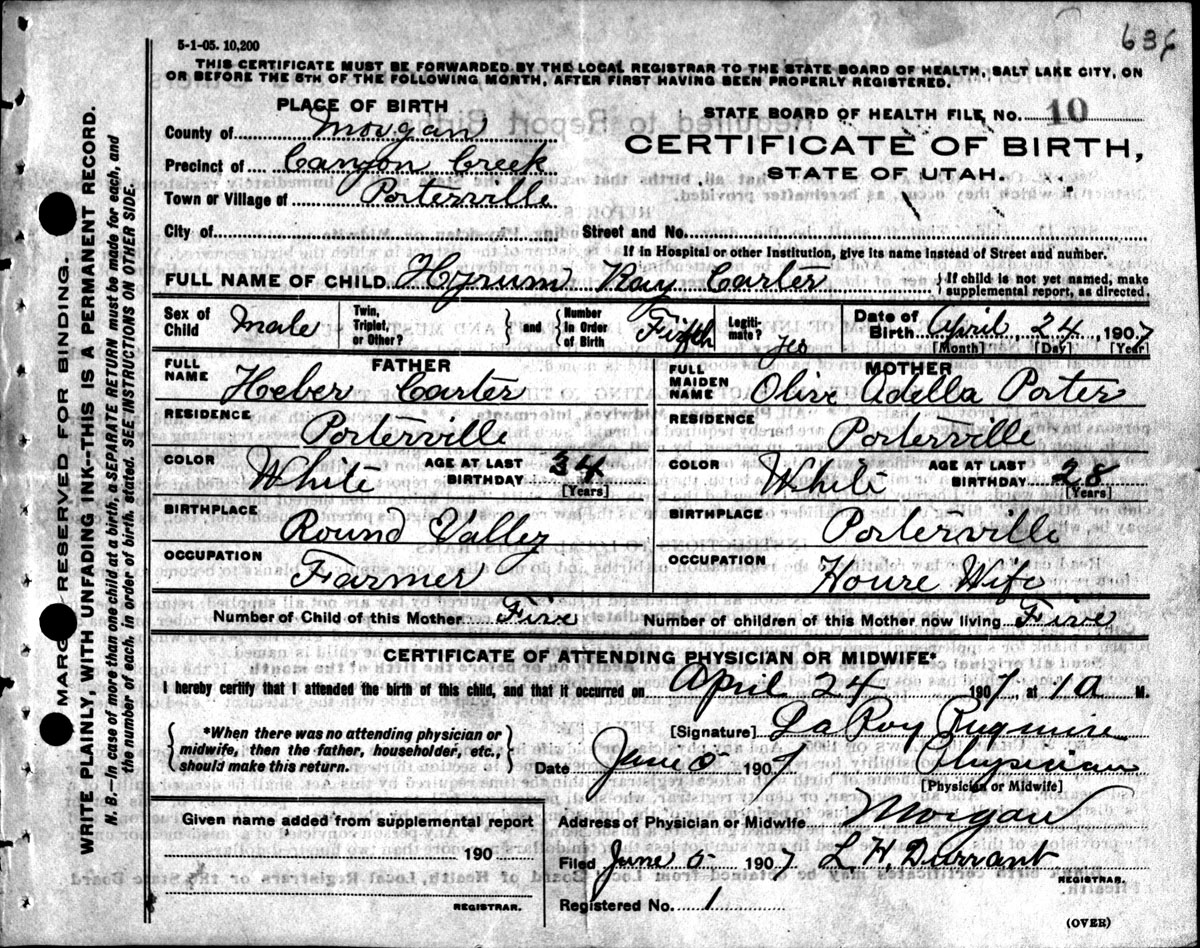 636
5-1-05. 10,200
THIS CERTIFICATE MUST BE FORWARDED BY THE LOCAL REGISTRAR TO THE STATE BOARD OF HEALTH, SALT LAKE CITY, ON
OR BEFORE THE 5TH OF THE FOLLOWING MONTH, AFTER FIRST HAVING BEEN PROPERLY REGISTERED.
PLACE OF BIRTH
County of Morgan
Precinct of Canyon Creek
Town or Village of Porterville
City of
STATE BOARD OF HEALTH FILE NO. 10
CERTIFICATE OF BIRTH,
STATE OF UTAH.
Street and No.
If in Hospital or other Institution, give its name instead of Street and number.
FULL NAME OF CHILD Hyrum Ray Carter } If child is not yet named, make supplemental report, as directed.
Sex of Child Male Twin, Triplet, or Other? } and { Number in Order of Birth Fifth Legitimate? Yes Date of Birth April 24, 1907
[Month] [Day] [Year]
FATHER
FULL NAME Heber Carter
RESIDENCE Porterville
COLOR White AGE AT LAST BIRTHDAY 34 [Years]
BIRTHPLACE Round Valley
OCCUPATION Farmer
MOTHER
FULL MAIDEN NAME Olive Adella Porter
RESIDENCE Porterville
COLOR White AGE AT LAST BIRTHDAY 28 [Years]
BIRTHPLACE Porterville
OCCUPATION House Wife
Number of Child of this Mother Five Number of children of this Mother now living Five
CERTIFICATE OF ATTENDING PHYSICIAN OR MIDWIFE*
I hereby certify that I attended the birth of this child, and that it occurred on April 24 1907, at 1 a M.
{ *When there was no attending physician or midwife, then the father, householder, etc., should make this return. }
[Signature] LaRoy
Date June 1907 Physician
[Physician or Midwife]
Given name added from supplemental report
190
REGISTRAR.
Address of Physician or Midwife Morgan
Filed June 5 1907 L H Durrant
REGISTRAR.
Registered No. 1
(OVER)
MARGIN RESERVED FOR BINDING.
WRITE PLAINLY, WITH UNFADING INK--THIS IS A PERMANENT RECORD.
N. B.—In case of more than one child at a birth, a SEPARATE RETURN must be made for each, and
the number of each, in order of birth, stated. SEE INSTRUCTIONS ON OTHER SIDE.